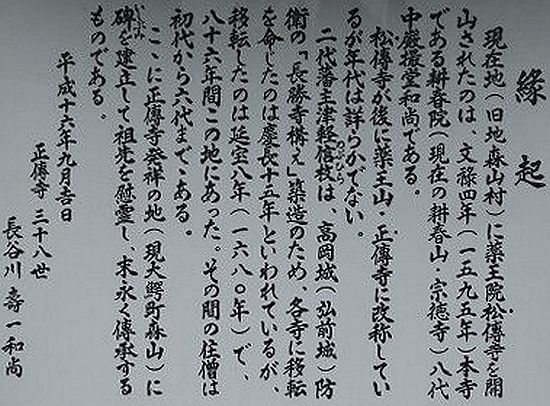 縁起
現在地(旧地森山村)に薬王院松傳寺を開
山されたのは、文禄四年(一五九五年)本寺
である耕春院(現在の耕春山・宗徳寺)八代
中巖振堂和尚である。
松傳寺が後に薬王山・正傳寺に改称してい
るが年代は詳らかでない。
二代藩主津軽信枚は、高岡城(弘前城)防
衛の「長勝寺構え」築造のため、各寺に移転
を命じたのは慶長十五年といわれているが、
移転したのは延宝八年(一六八〇年)で、
八十六年間この地にあった。その間の住僧は
初代から六代まである。
ここに正傳寺発祥の地(現大鰐町森山)に
碑を建立して祖先を慰霊し、末永く傳承する
ものである。
平成十六年九月吉日
正傳寺 三十八世
長谷川壽一和尚